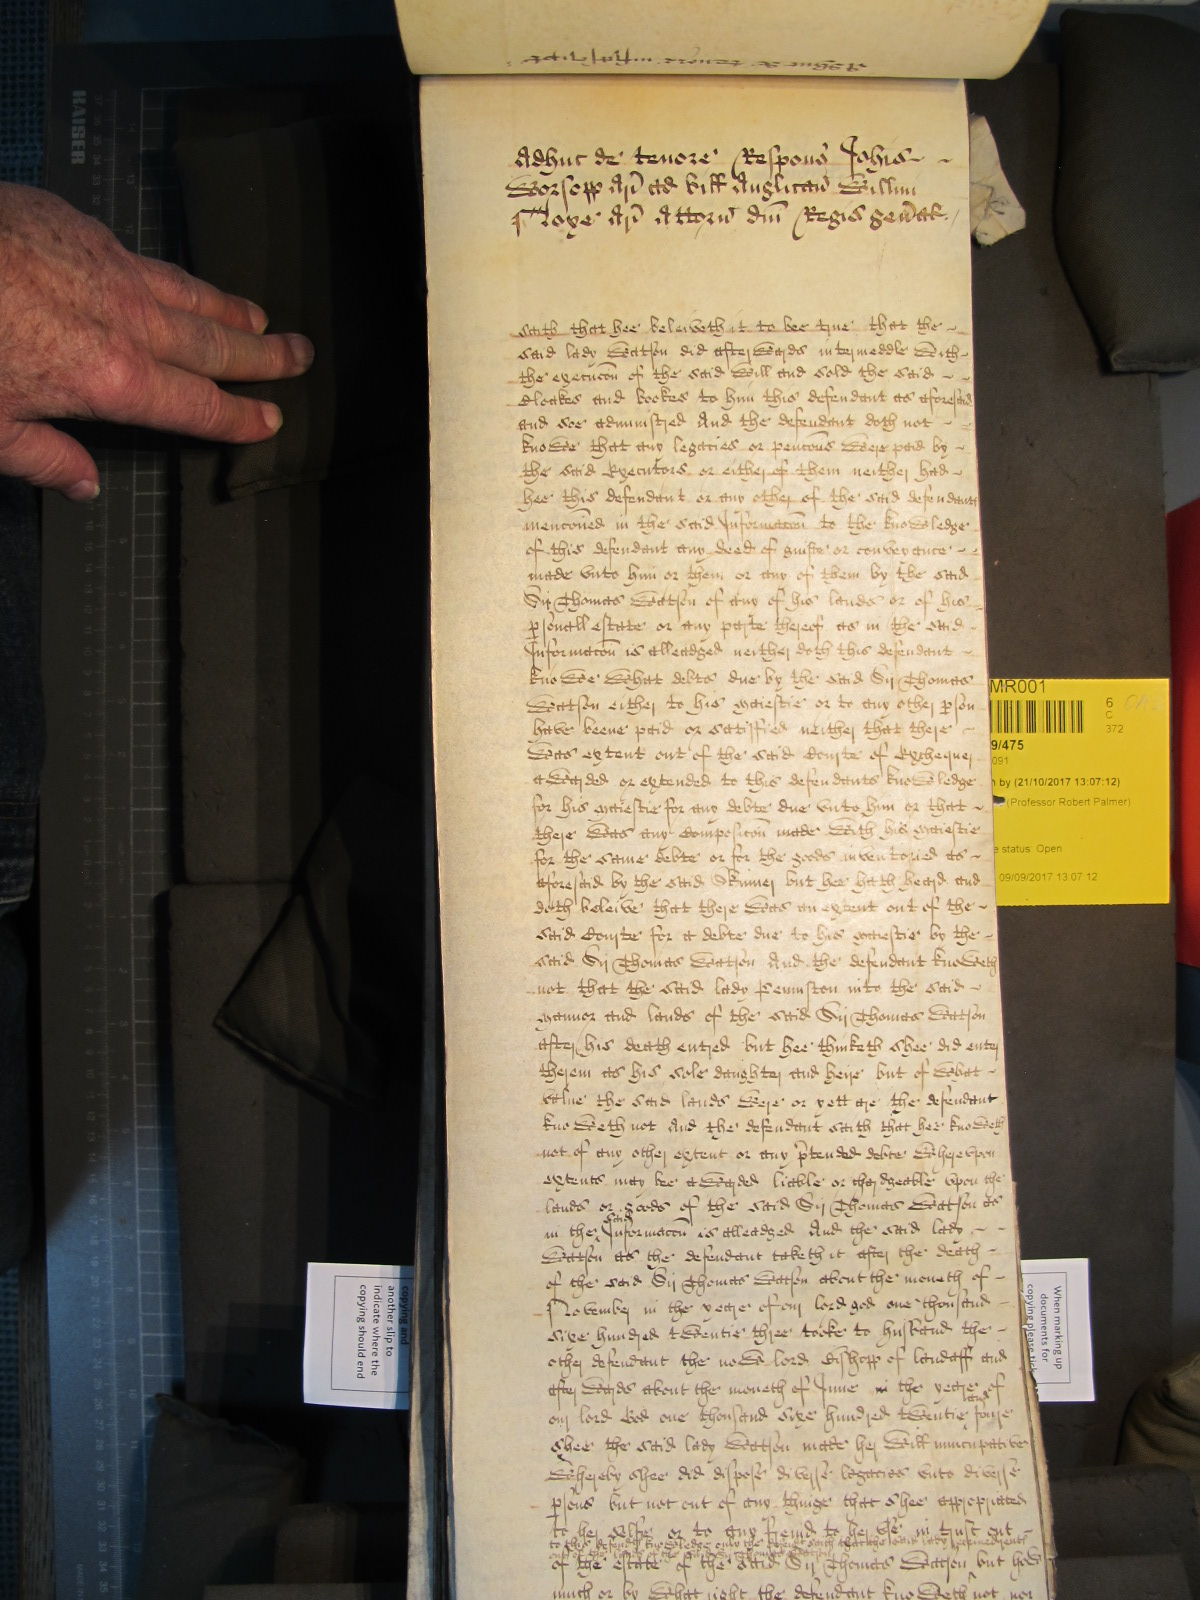 Adhuc de tenore Respons Johis
Worsopp Ar ad bill Anglican Willmi
Noye Ar Attorn dni Regis general
saith that hee beleiveth it to bee true that the
said lady Watson did afterwards intermeddle with
the execucon of the said will and sold the said
Cloakes and bookes to him this defendant as aforesaid
and soe administred And the defendant doth not
knowe that any legacies or pencons were paid by
the said Executors or either of them neither had
hee this defendant or any other of the said defendants
mencioned in the said Informacon to the knowledge
of this defendant any deed of guifte or conveyance
made unto him or them or any of them by the said
Sir Thomas Watson of any of his lands or of his
psonall estate or any parte thereof as in the said
Informacon is alleadged neither doth this defendant
knowe what debts due by the said Sir Thomas
Watson either to his Maiestie or to any other pson
have beene paid or satisfied neither that there
was extent out of the said Courte of Exchequer
awarded or extended to this defendants knowledge
for his Maiestie for any debte due unto him or that
there was any Composicon made with his Maiestie
for the same debte or for the goods inventoried as
aforesaid by the said Skinner but hee hath heard and
doth beleive that there was an extent out of the
said Courte for a debte due to his Maiestie by the
said Sir Thomas Watson And the defendant knoweth
not that the said lady into the said
Mannor and lands of the said Sir Thomas Watson
after his death entred but hee thinketh shee did enter
therein as his sole daughter and heire but of what
value the said lands were or yett are the defendant
knoweth not And the defendant saith that hee knoweth
not of any other extent or any ptended debte whereupon
extents may bee awarded liable or chardgeable upon the
lands or goods of the said Sir Thomas Watson as
in the said Informacon is alleadged And the said lady
Watson as the defendant taketh it after the death
of the said Sir Thomas Watson about the moneth of
November in the yeare of our lord god one thousand
sixe hundred twentie three tooke to husband the
other defendant the nowe lord Bishopp of landaff and
afterwards about the moneth of June in the yeare of
our lord God one thousand sixe hundred twentie foure
shee the said lady Watson made her will nuncupative
whereby shee did dispose diverse legacies unto diverse
psons but not out of any thinge that shee appropriated
to her selfe or to any freind to her use in trust out
of the estate of the said Sir Thomas Watson but how
much or by what right the defendant knoweth not nor
KAISER
MR001
6
C
372
9/475
091
by (21/10/2017 13:07:12)
(Professor Robert Palmer)
status: Open
09/09/2017 13:07:12
copying and
another slip to
indicate where the
copying should end
When marking up
documents for
copying please tick